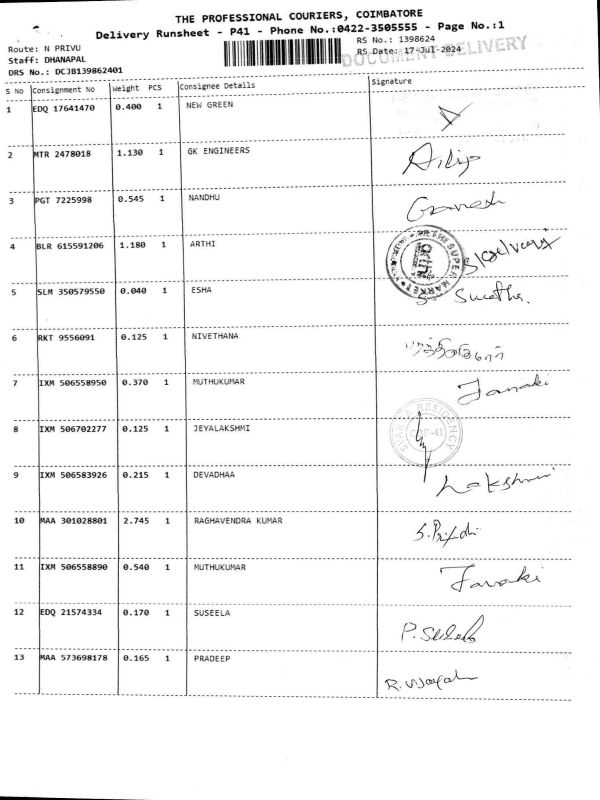 THE PROFESSIONAL COURIERS, COIMBATORE
Delivery Runsheet - P41 - Phone No.:0422-3505555 - Page No.:1
Route: N PRIVU
RS No.: 1398624
Staff: DHANAPAL
RS Date: 17-Jul-2024
DOCUMENT DELIVERY
DRS No.: DCJB139862401
S No Consignment No Weight PCS Consignee Details Signature
1 EDQ 17641470 0.400 1 NEW GREEN
2 MTR 2478018 1.130 1 GK ENGINEERS Dilip
3 PGT 7225998 0.545 1 NANDHU Ganesh
4 BLR 615591206 1.180 1 ARTHI
SUPER MARKET
5 SLM 350579550 0.040 1 ESHA S Swetha.
6 RKT 9556091 0.125 1 NIVETHANA
7 IXM 506558950 0.370 1 MUTHUKUMAR Janaki
8 IXM 506702277 0.125 1 JEYALAKSHMI
RESIDENCY
CBE-41
9 IXM 506583926 0.215 1 DEVADHAA Lakshmi
10 MAA 301028801 2.745 1 RAGHAVENDRA KUMAR
11 IXM 506558890 0.540 1 MUTHUKUMAR Janaki
12 EDQ 21574334 0.170 1 SUSEELA
13 MAA 573698178 0.165 1 PRADEEP